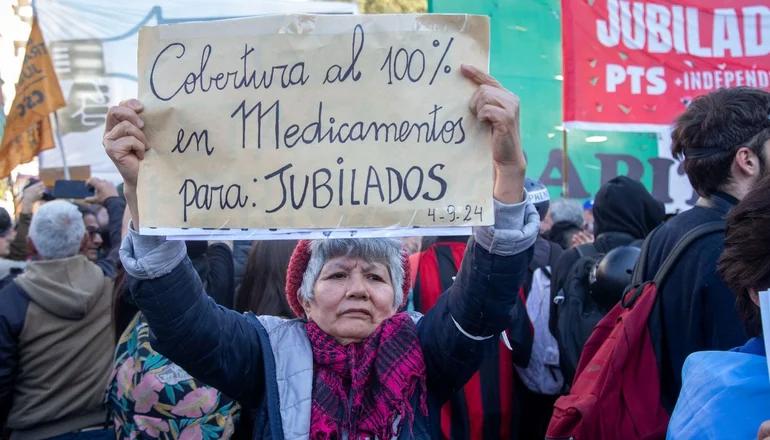 Cobertura al 100%
en Medicamentos
para: JUBILADOS
4-9-24
JUBILAD
PTS +INDEPEN